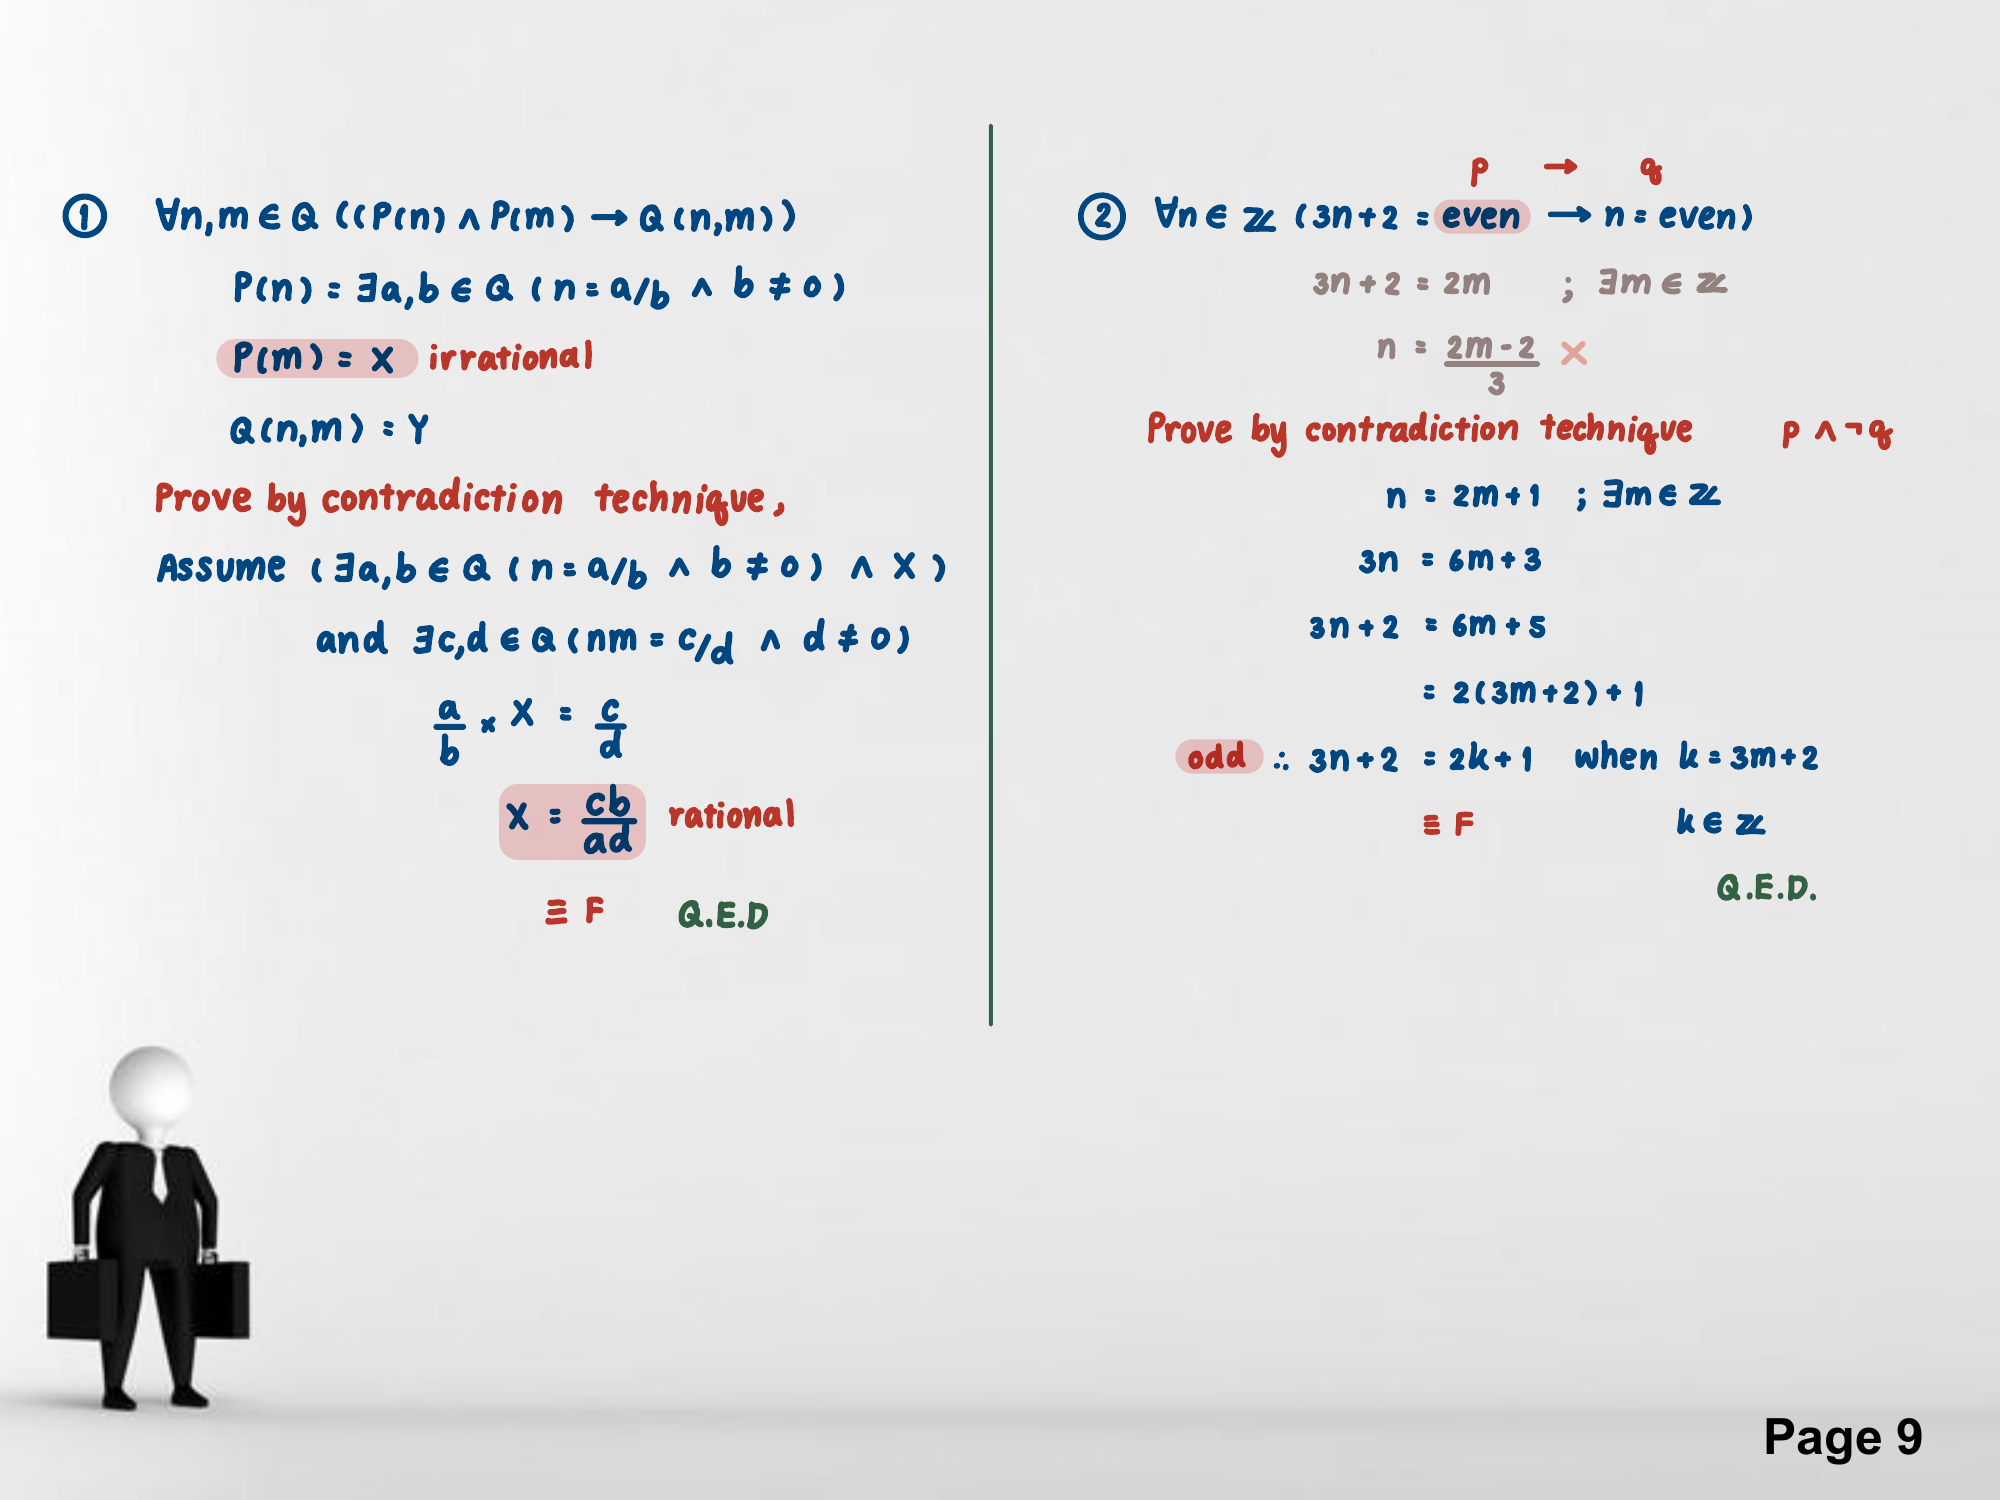 ① ∀n,m ∈ Q ((P(n) ∧ P(m) → Q(n,m))
P(n) = ∃a,b ∈ Q (n = a/b ∧ b ≠ 0)
P(m) = X irrational
Q(n,m) = Y
Prove by contradiction technique,
Assume (∃a,b ∈ Q (n = a/b ∧ b ≠ 0) ∧ X)
and ∃c,d ∈ Q (nm = c/d ∧ d ≠ 0)
a/b × X = c/d
X = cb/ad rational
≡ F Q.E.D
p → q
② ∀n ∈ ℤ (3n+2 = even → n = even)
3n+2 = 2m ; ∃m ∈ ℤ
n = 2m-2/3 ×
Prove by contradiction technique p ∧ ¬q
n = 2m+1 ; ∃m ∈ ℤ
3n = 6m+3
3n+2 = 6m+5
= 2(3m+2)+1
odd ∴ 3n+2 = 2k+1 when k = 3m+2
≡ F k ∈ ℤ
Q.E.D.
Page 9